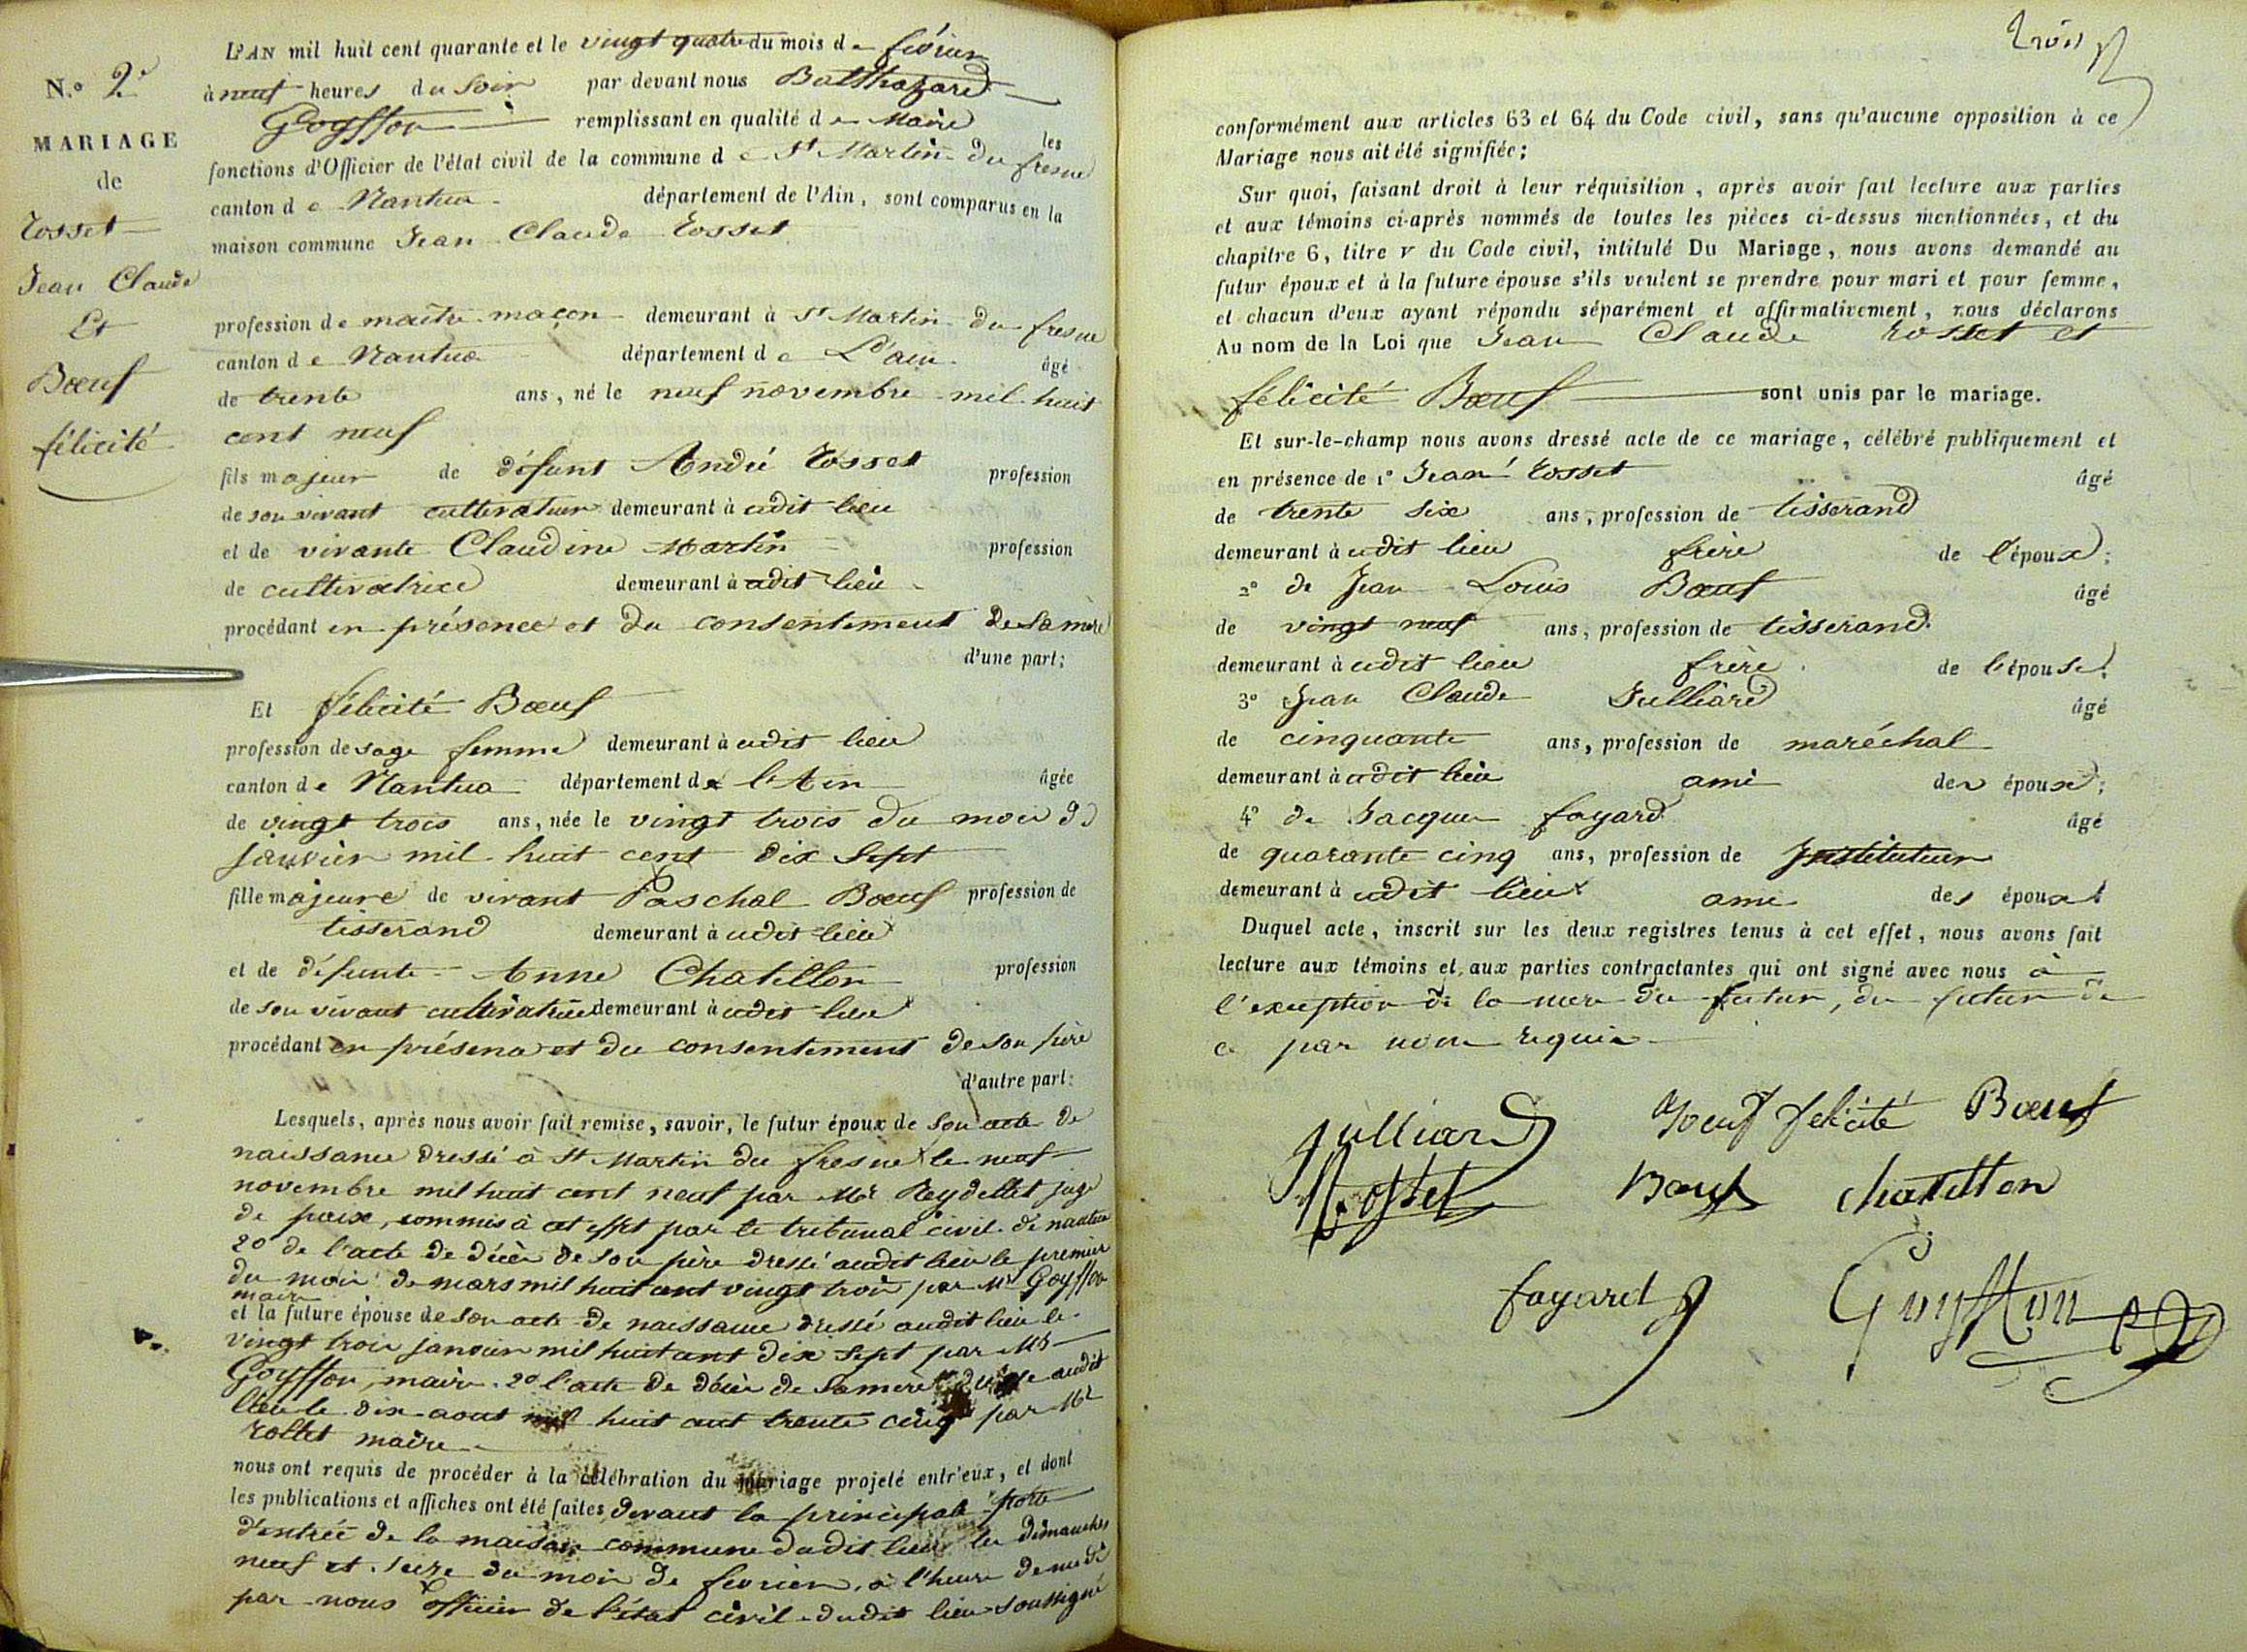 N.o 2e
MARIAGE
de
Rosset
Jean Claude
Et
Bœuf
félicité
L'AN mil huit cent quarante et le vingt quatre du mois de février
à neuf heures du soir par devant nous Balthazard
Goyffon remplissant en qualité de Maire les
fonctions d'Officier de l'état civil de la commune de St Martin du fresne
canton de Nantua département de l'Ain, sont comparus en la
maison commune Jean Claude Rosset
profession de maître maçon demeurant à St Martin du fresne
canton de Nantua département de L'ain âgé
de trente ans, né le neuf novembre mil huit
cent neuf
fils majeur de défunt André Rosset profession
de son vivant cultivateur demeurant à udit lieu
et de vivante Claudine Martin profession
de cultivatrice demeurant à udit lieu
procédant en présence et du consentement de sa mère
d'une part;
Et félicité Bœuf
profession de sage femme demeurant à udit lieu
canton de Nantua département de l'Ain âgée
de vingt trois ans, née le vingt trois du mois de
janvier mil huit cent dix sept
fille majeure de vivant Paschal Bœuf profession de
tisserand demeurant à udit lieu
et de défunte Anne Chatillon profession
de son vivant cultivatrice demeurant à udit lieu
procédant en présence et du consentement de son père
d'autre part:
Lesquels, après nous avoir fait remise, savoir, le futur époux de son acte de
naissance dressé à St Martin du fresne le neuf
novembre mil huit cent neuf par Mr Reydellet juge
de paix, commis à cet effet par le tribunal civil de nantua
2o de l'acte de décès de son père dressé audit lieu le premier
du mois de mars mil huit cent vingt trois par Mr Goyffon
maire
et la future épouse de son acte de naissance dressé audit lieu le
vingt trois janvier mil huit cent dix sept par Mr
Goyffon, maire. 2o l'acte de décès de sa mère dressé audit
lieu le dix aout mil huit cent trente cinq par Mr
rollet maire
nous ont requis de procéder à la célébration du mariage projeté entr'eux, et dont
les publications et affiches ont été faites devant la principale porte
d'entrée de la maison commune dudit lieu les dimanches
neuf et seize du mois de fevrier, à l'heure de midi
par nous officier de l'état civil dudit lieu soussigné
trois
conformément aux articles 63 et 64 du Code civil, sans qu'aucune opposition à ce
Mariage nous ait été signifiée;
Sur quoi, faisant droit à leur réquisition, après avoir fait lecture aux parties
et aux témoins ci-après nommés de toutes les pièces ci-dessus mentionnées, et du
chapitre 6, titre v du Code civil, intitulé Du Mariage, nous avons demandé au
futur époux et à la future épouse s'ils veulent se prendre pour mari et pour femme,
et chacun d'eux ayant répondu séparément et affirmativement, nous déclarons
Au nom de la Loi que Jean Claude rosset et
félicité Bœuf sont unis par le mariage.
Et sur-le-champ nous avons dressé acte de ce mariage, célébré publiquement et
en présence de 1o Jean Rosset âgé
de trente six ans, profession de tisserand
demeurant à udit lieu frère de l'époux;
2o de Jean Louis Bœuf âgé
de vingt neuf ans, profession de tisserand
demeurant à udit lieu frère de l'épouse;
3o Jean Claude Julliard âgé
de cinquante ans, profession de maréchal
demeurant à udit lieu ami des époux;
4o de Jacques fayard âgé
de quarante cinq ans, profession de Instituteur
demeurant à udit lieu ami des époux
Duquel acte, inscrit sur les deux registres tenus à cet effet, nous avons fait
lecture aux témoins et aux parties contractantes qui ont signé avec nous à
l'exception de la mere du futur, du futur de
ce par nous requis
julliard Bœuf felicité Bœuf
Rosset Bœuf chatillon
fayard Goyffon